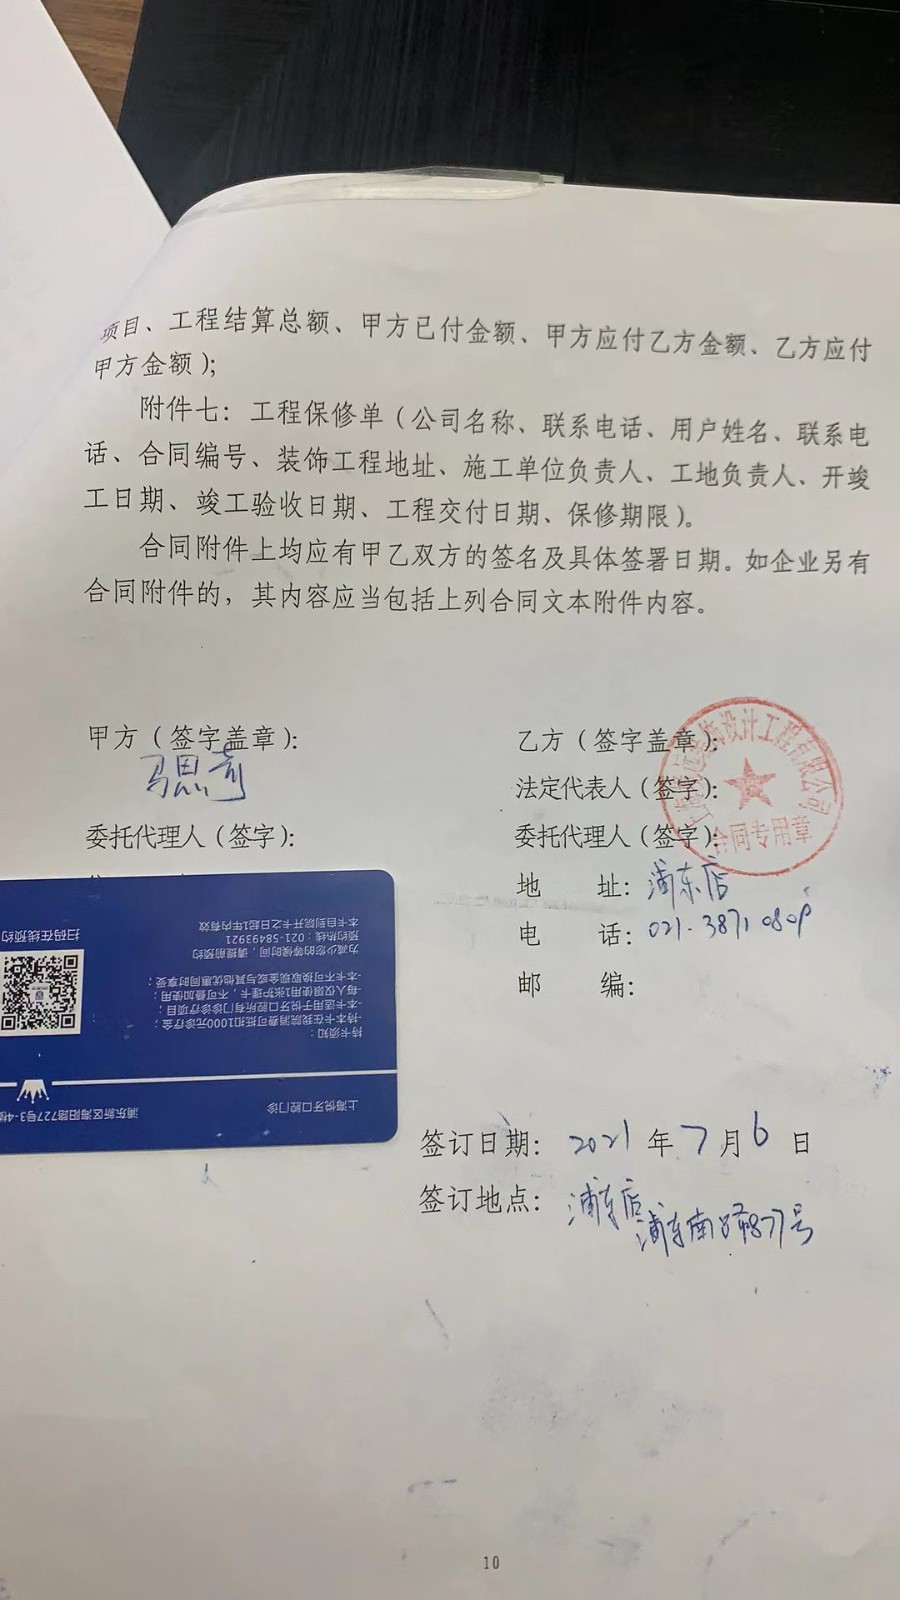 项目、工程结算总额、甲方已付金额、甲方应付乙方金额、乙方应付
甲方金额）；
附件七：工程保修单（公司名称、联系电话、用户姓名、联系电
话、合同编号、装饰工程地址、施工单位负责人、工地负责人、开竣
工日期、竣工验收日期、工程交付日期、保修期限）。
合同附件上均应有甲乙双方的签名及具体签署日期。如企业另有
合同附件的，其内容应当包括上列合同文本附件内容。
甲方（签字盖章）：
马思奇
委托代理人（签字）：
乙方（签字盖章）：
法定代表人（签字）：
委托代理人（签字）：
地 址：浦东店
电 话：021-3871080
邮 编：
装饰设计工程有限公司
合同专用章
签订日期：2021年7月6日
签订地点：浦东店
浦东南路877号
上海悦牙口腔门诊
浦东新区海阳路727号3-4
持卡须知：
·持本卡在我院消费可抵扣1000元诊疗金；
·本卡适用于悦牙口腔所有门诊诊疗项目；
·每人仅限使用1张护理卡，不可叠加使用；
·本卡不可换取现金或与其他优惠同时享受；
为减少您的等候时间，请提前预约
预约热线：021-58493921
本卡自到院开卡之日起1年内有效
扫码在线预约
10